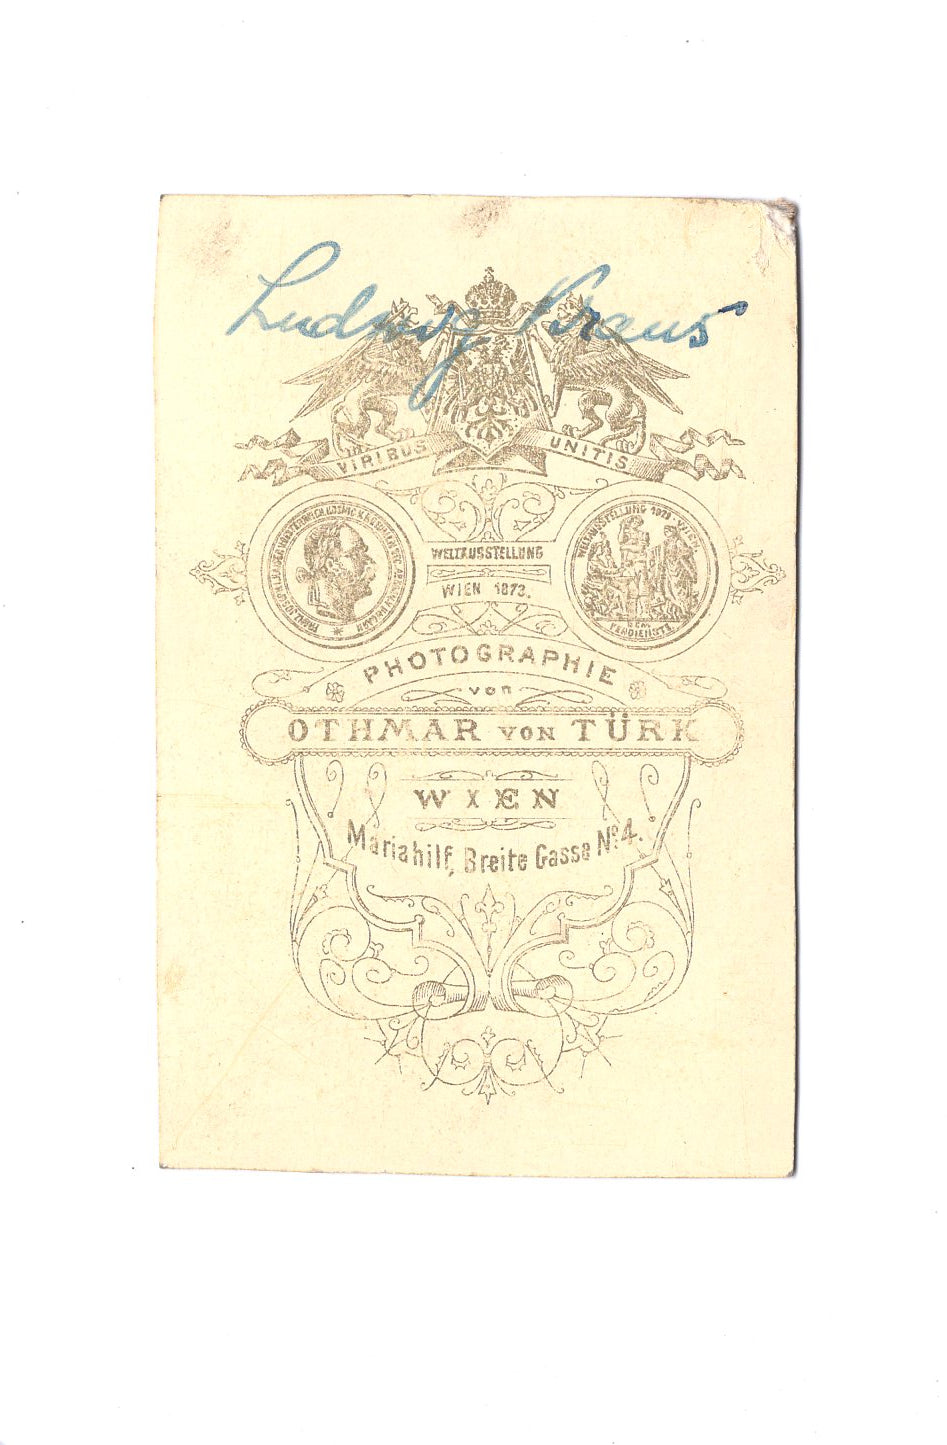 Ludwig Kraus
VIRIBUS UNITIS
WELTAUSSTELLUNG
WIEN 1873.
WELTAUSSTELLUNG 1873 WIEN
DEM
VERDIENSTE
PHOTOGRAPHIE
von
OTHMAR VON TÜRK
WIEN
Mariahilf, Breite Gasse No 4.